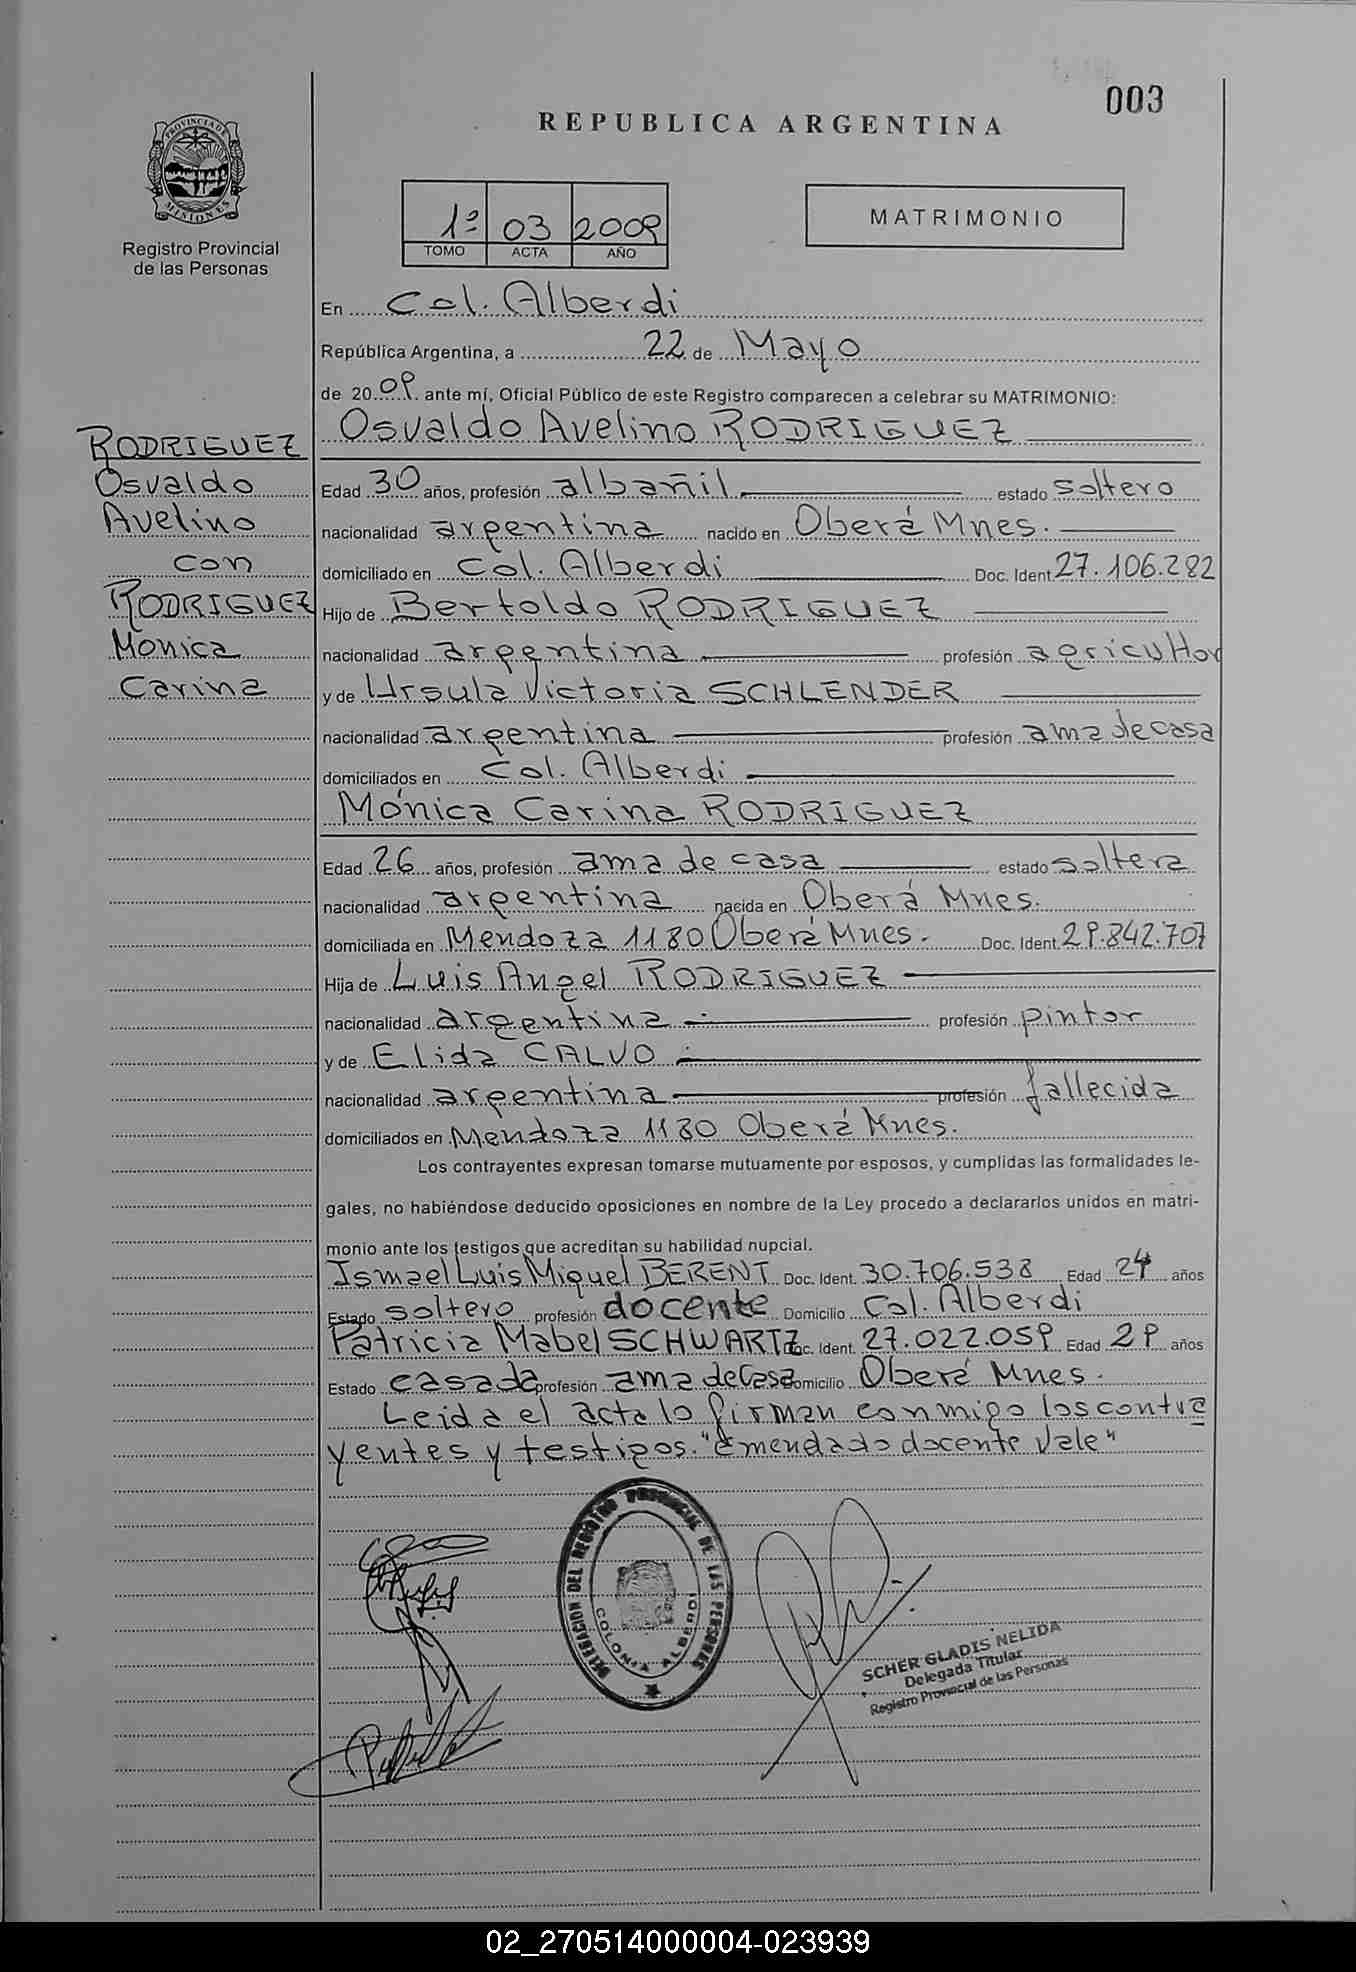 003
REPUBLICA ARGENTINA
PROVINCIA DE MISIONES
Registro Provincial
de las Personas
1º 03 2009
TOMO ACTA AÑO
MATRIMONIO
En Col. Alberdi
República Argentina, a 22 de Mayo
de 2009 ante mí, Oficial Público de este Registro comparecen a celebrar su MATRIMONIO:
RODRIGUEZ
Osvaldo
Avelino
con
RODRIGUEZ
Mónica
Carina
Osvaldo Avelino RODRIGUEZ
Edad 30 años, profesión albañil estado soltero
nacionalidad argentina nacido en Oberá Mnes.
domiciliado en Col. Alberdi Doc. Ident 27.106.282
Hijo de Bertoldo RODRIGUEZ
nacionalidad argentina profesión agricultor
y de Ursula Victoria SCHLENDER
nacionalidad argentina profesión ama de casa
domiciliados en Col. Alberdi
Mónica Carina RODRIGUEZ
Edad 26 años, profesión ama de casa estado soltera
nacionalidad argentina nacida en Oberá Mnes.
domiciliada en Mendoza 1180 Oberá Mnes. Doc. Ident. 29.842.707
Hija de Luis Angel RODRIGUEZ
nacionalidad argentina profesión pintor
y de Elida CALVO
nacionalidad argentina profesión fallecida
domiciliados en Mendoza 1180 Oberá Mnes.
Los contrayentes expresan tomarse mutuamente por esposos, y cumplidas las formalidades le-
gales, no habiéndose deducido oposiciones en nombre de la Ley procedo a declararlos unidos en matri-
monio ante los testigos que acreditan su habilidad nupcial.
Ismael Luis Miguel BERENT Doc. Ident. 30.706.538 Edad 24 años
Estado soltero profesión docente Domicilio Col. Alberdi
Patricia Mabel SCHWARTZ Doc. Ident. 27.022.059 Edad 29 años
Estado casada profesión ama de casa Domicilio Oberá Mnes.
Leida el acta lo firman conmigo los contra
yentes y testigos. "Emendado docente Vale"
DELEGACION DEL REGISTRO PROVINCIAL DE LAS PERSONAS
COLONIA ALBERDI
SCHER GLADIS NELIDA
Delegada Titular
Registro Provincial de las Personas
02_270514000004-023939